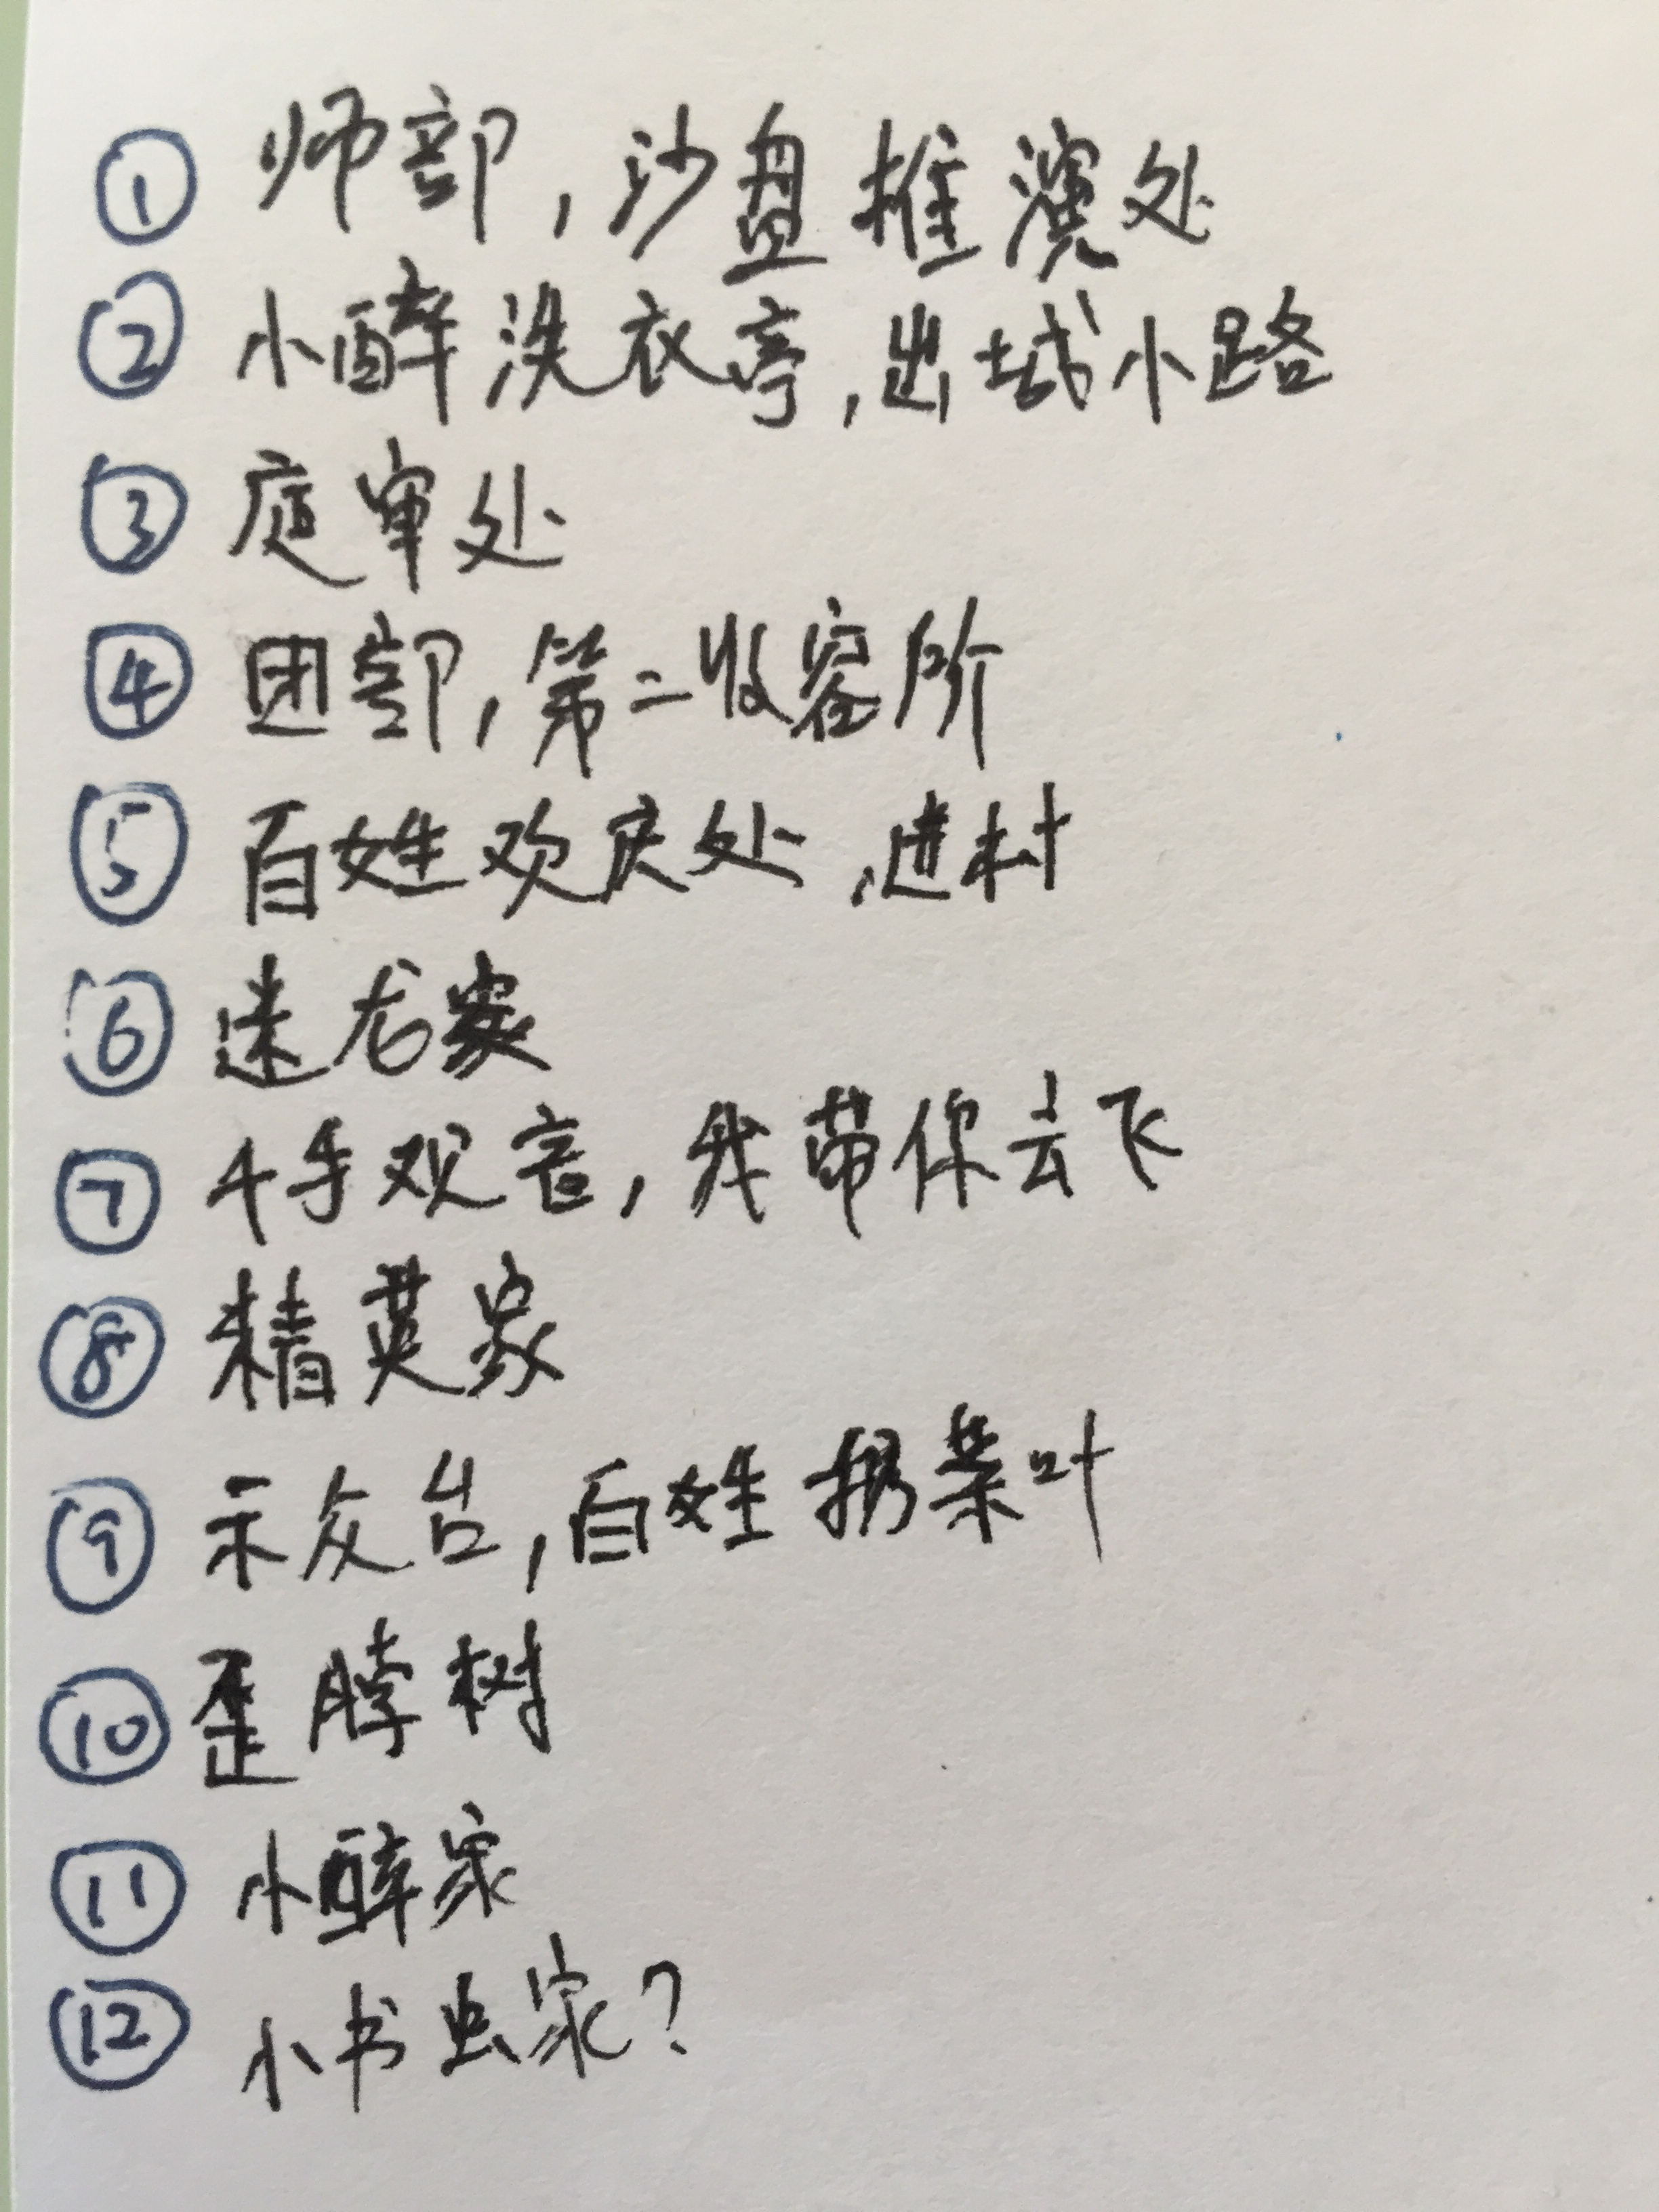 ① 师部,沙盘推演处
② 小醉洗衣亭,出城小路
③ 庭审处
④ 团部,第二收容所
⑤ 百姓欢庆处,进村
⑥ 迷龙家
⑦ 4手观音,我带你去飞
⑧ 精英家
⑨ 示众台,百姓扔菜叶
⑩ 歪脖树
⑪ 小醉家
⑫ 小书虫家?